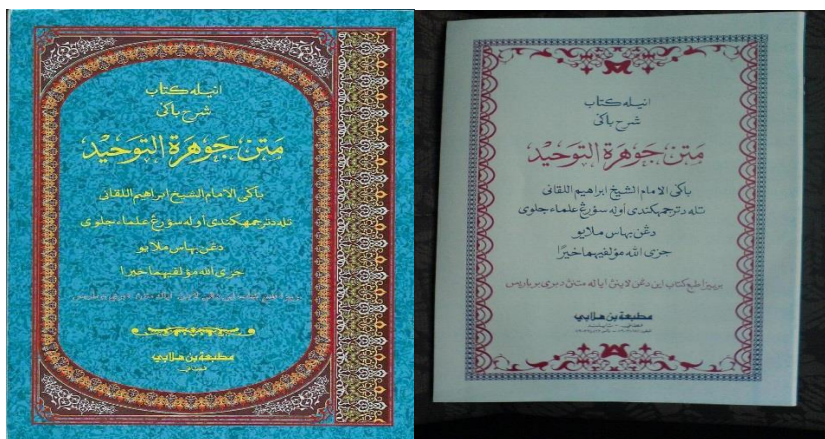 انيله كتاب
شرح باكي
متن جوهرة التوحيد
باكي الامام الشيخ ابراهيم اللقاني
تله دترجمهكندي أوله سؤرڠ علماء جاوي
دڠن بهاس ملايو
جزى الله مؤلفيهما خيرا
مطبعة بن هلابي
انيله كتاب
شرح باكي
متن جوهرة التوحيد
باكي الامام الشيخ ابراهيم اللقاني
تله دترجمهكندي أوله سؤرڠ علماء جاوي
دڠن بهاس ملايو
جزى الله مؤلفيهما خيرا
بربيزا طبع كتاب اين دڠن لاينث اياله متنث دبري برباريس
مطبعة بن هلابي